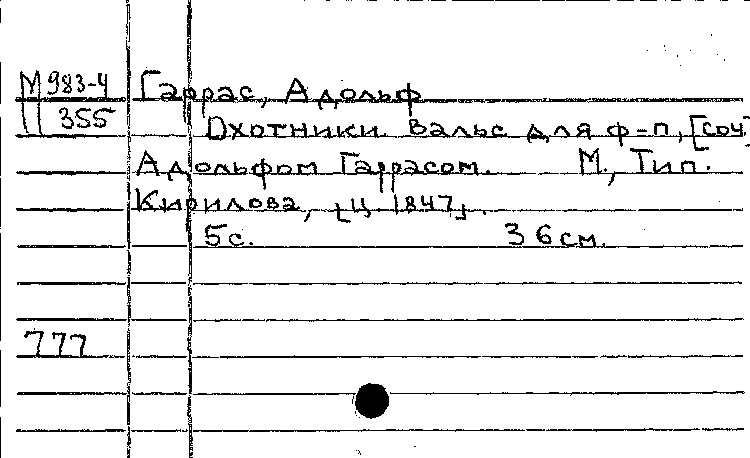 М 983-4 Гаррас, Адольф
355 Охотники. Вальс для ф-п, [соч.]
Адольфом Гаррасом. М., Тип.
Кирилова, [ц. 1847].
5с. 36 см.
777